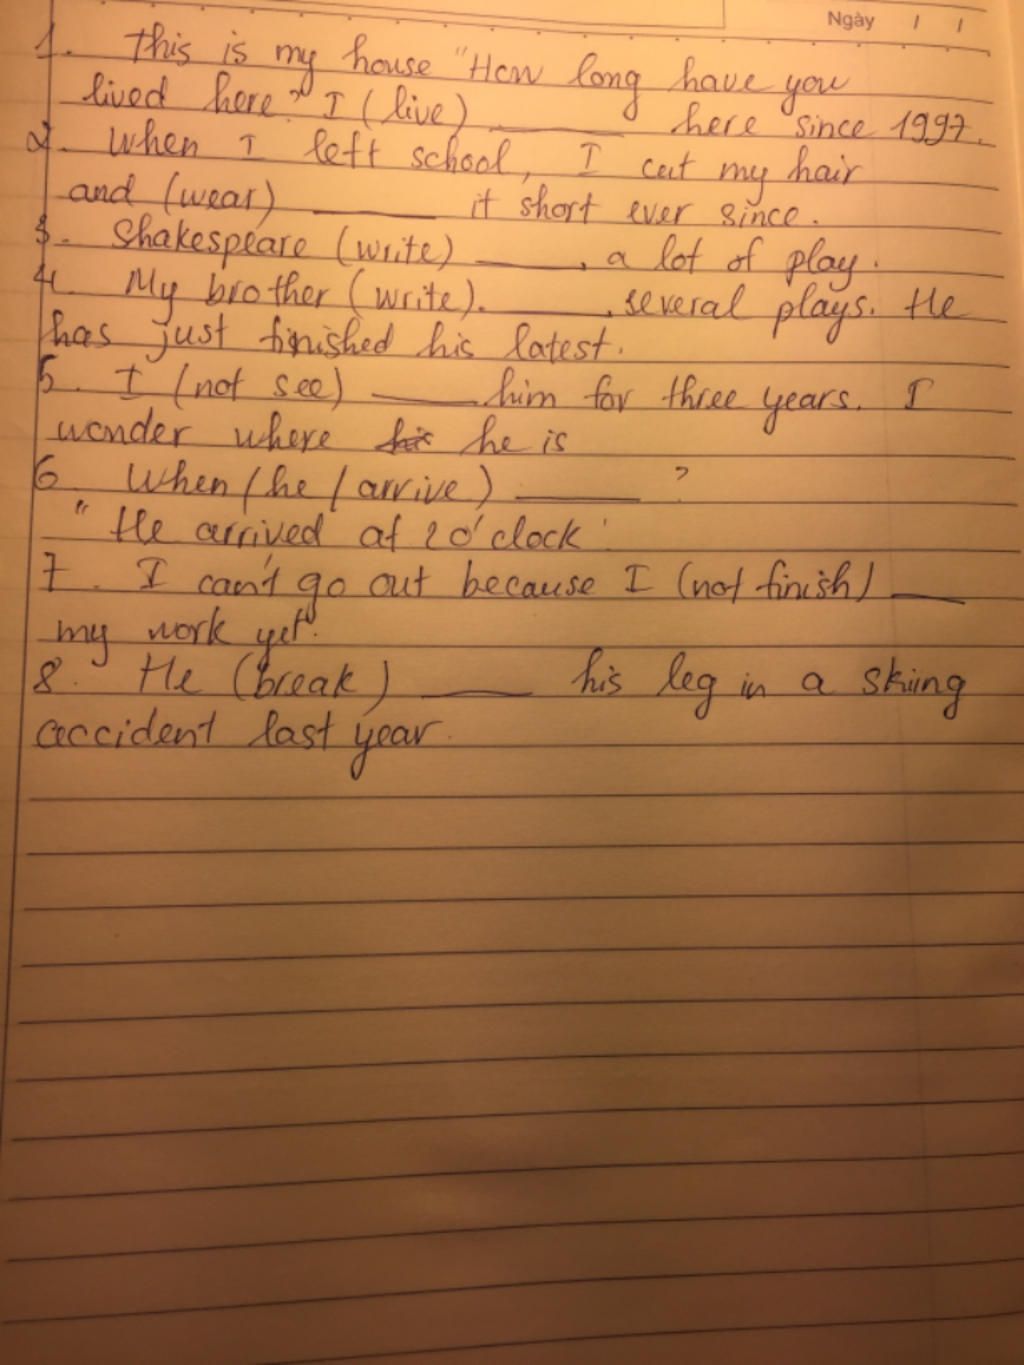 Ngày / /
1. This is my house "How long have you
lived here?" I (live) ______ here since 1997.
2. When I left school, I cut my hair
and (wear) ______ it short ever since.
3. Shakespeare (write) ______, a lot of play.
4. My brother (write). ______. several plays. He
has just finished his latest.
5. I (not see) ______ him for three years. I
wonder where he is
6. When (he / arrive) ______ ?
" He arrived at 2 o'clock '
7. I can't go out because I (not finish) ____
my work yet".
8. He (break) ______ his leg in a skiing
accident last year.